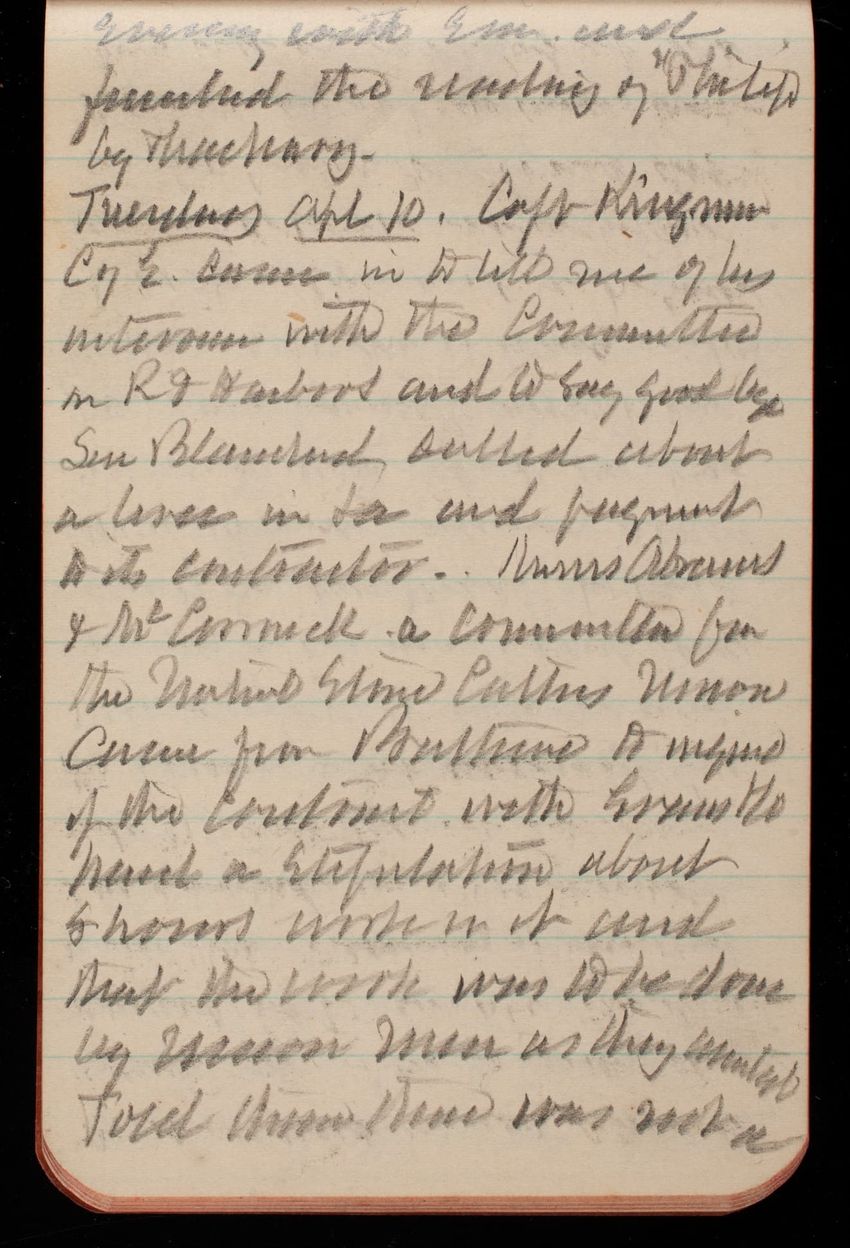 Evening with Em. and
finished the reading of "Philip
by Thackeray.
Tuesday Apl 10. Capt Kingman
C of E. came in to tell me of his
interview with the Committee
on R & Harbors and to say good bye
Sen Blanchard called about
a levee in La and payment
to its contractor.. Abrams
& McCormick a committee from
the Stone Cutters Union
Came from Baltimore to inquire
if the contract with Evans
had a Stipulation about
8 hours work in it and
that the work was to be done
by Union men as they wanted
Told them there was not a